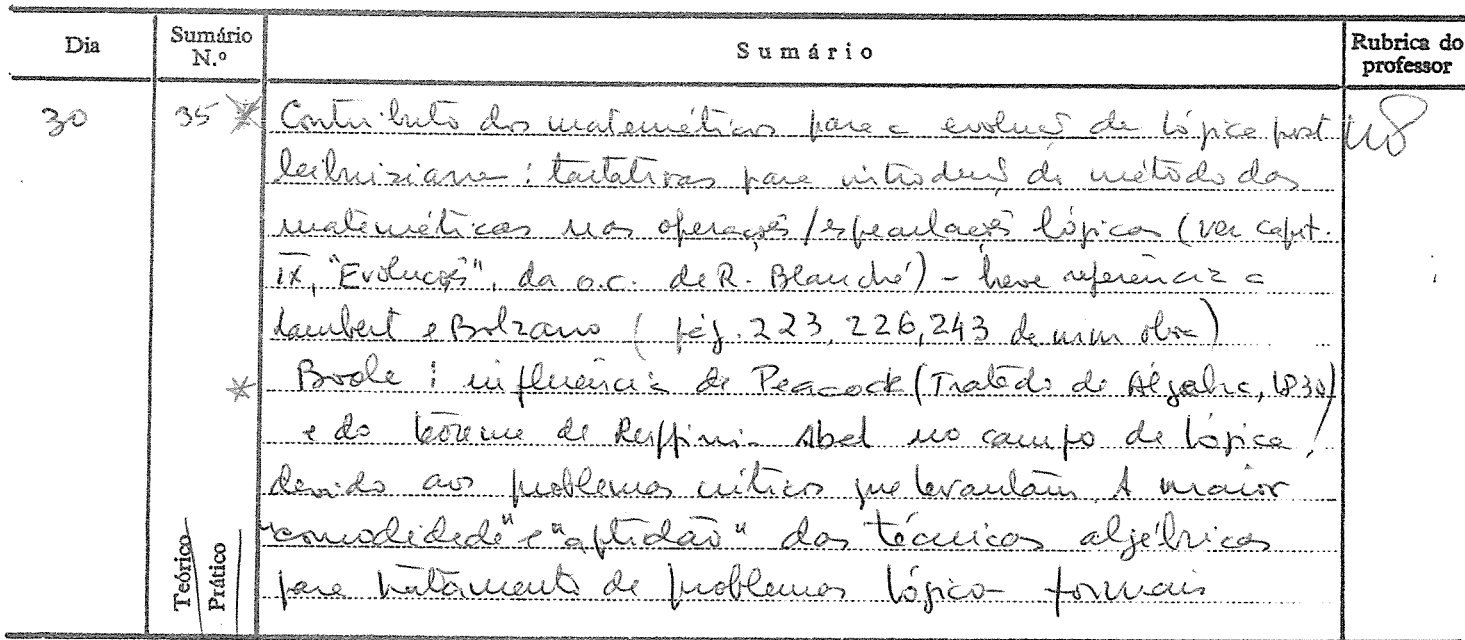 Dia Sumário N.º Sumário Rubrica do professor
30 35 Contributo dos matemáticos para a evolução da lógica post
leibniziana: tentativas para introdução do método das
matemáticas nas operações/especulações lógicas (ver capít.
IX, "Evolução", da o.c. de R. Blanché) - breve referência a
Lambert e Bolzano (pág. 223, 226, 243 da mm obra)
Boole: influência de Peacock (Tratado de Álgebra, 1830)
e do teorema de Ruffini-Abel no campo da lógica,
devido aos problemas críticos que levantam. A maior
"comodidade" e "aptidão" das técnicas algébricas
para tratamento de problemas lógico-formais
Teórico
Prático